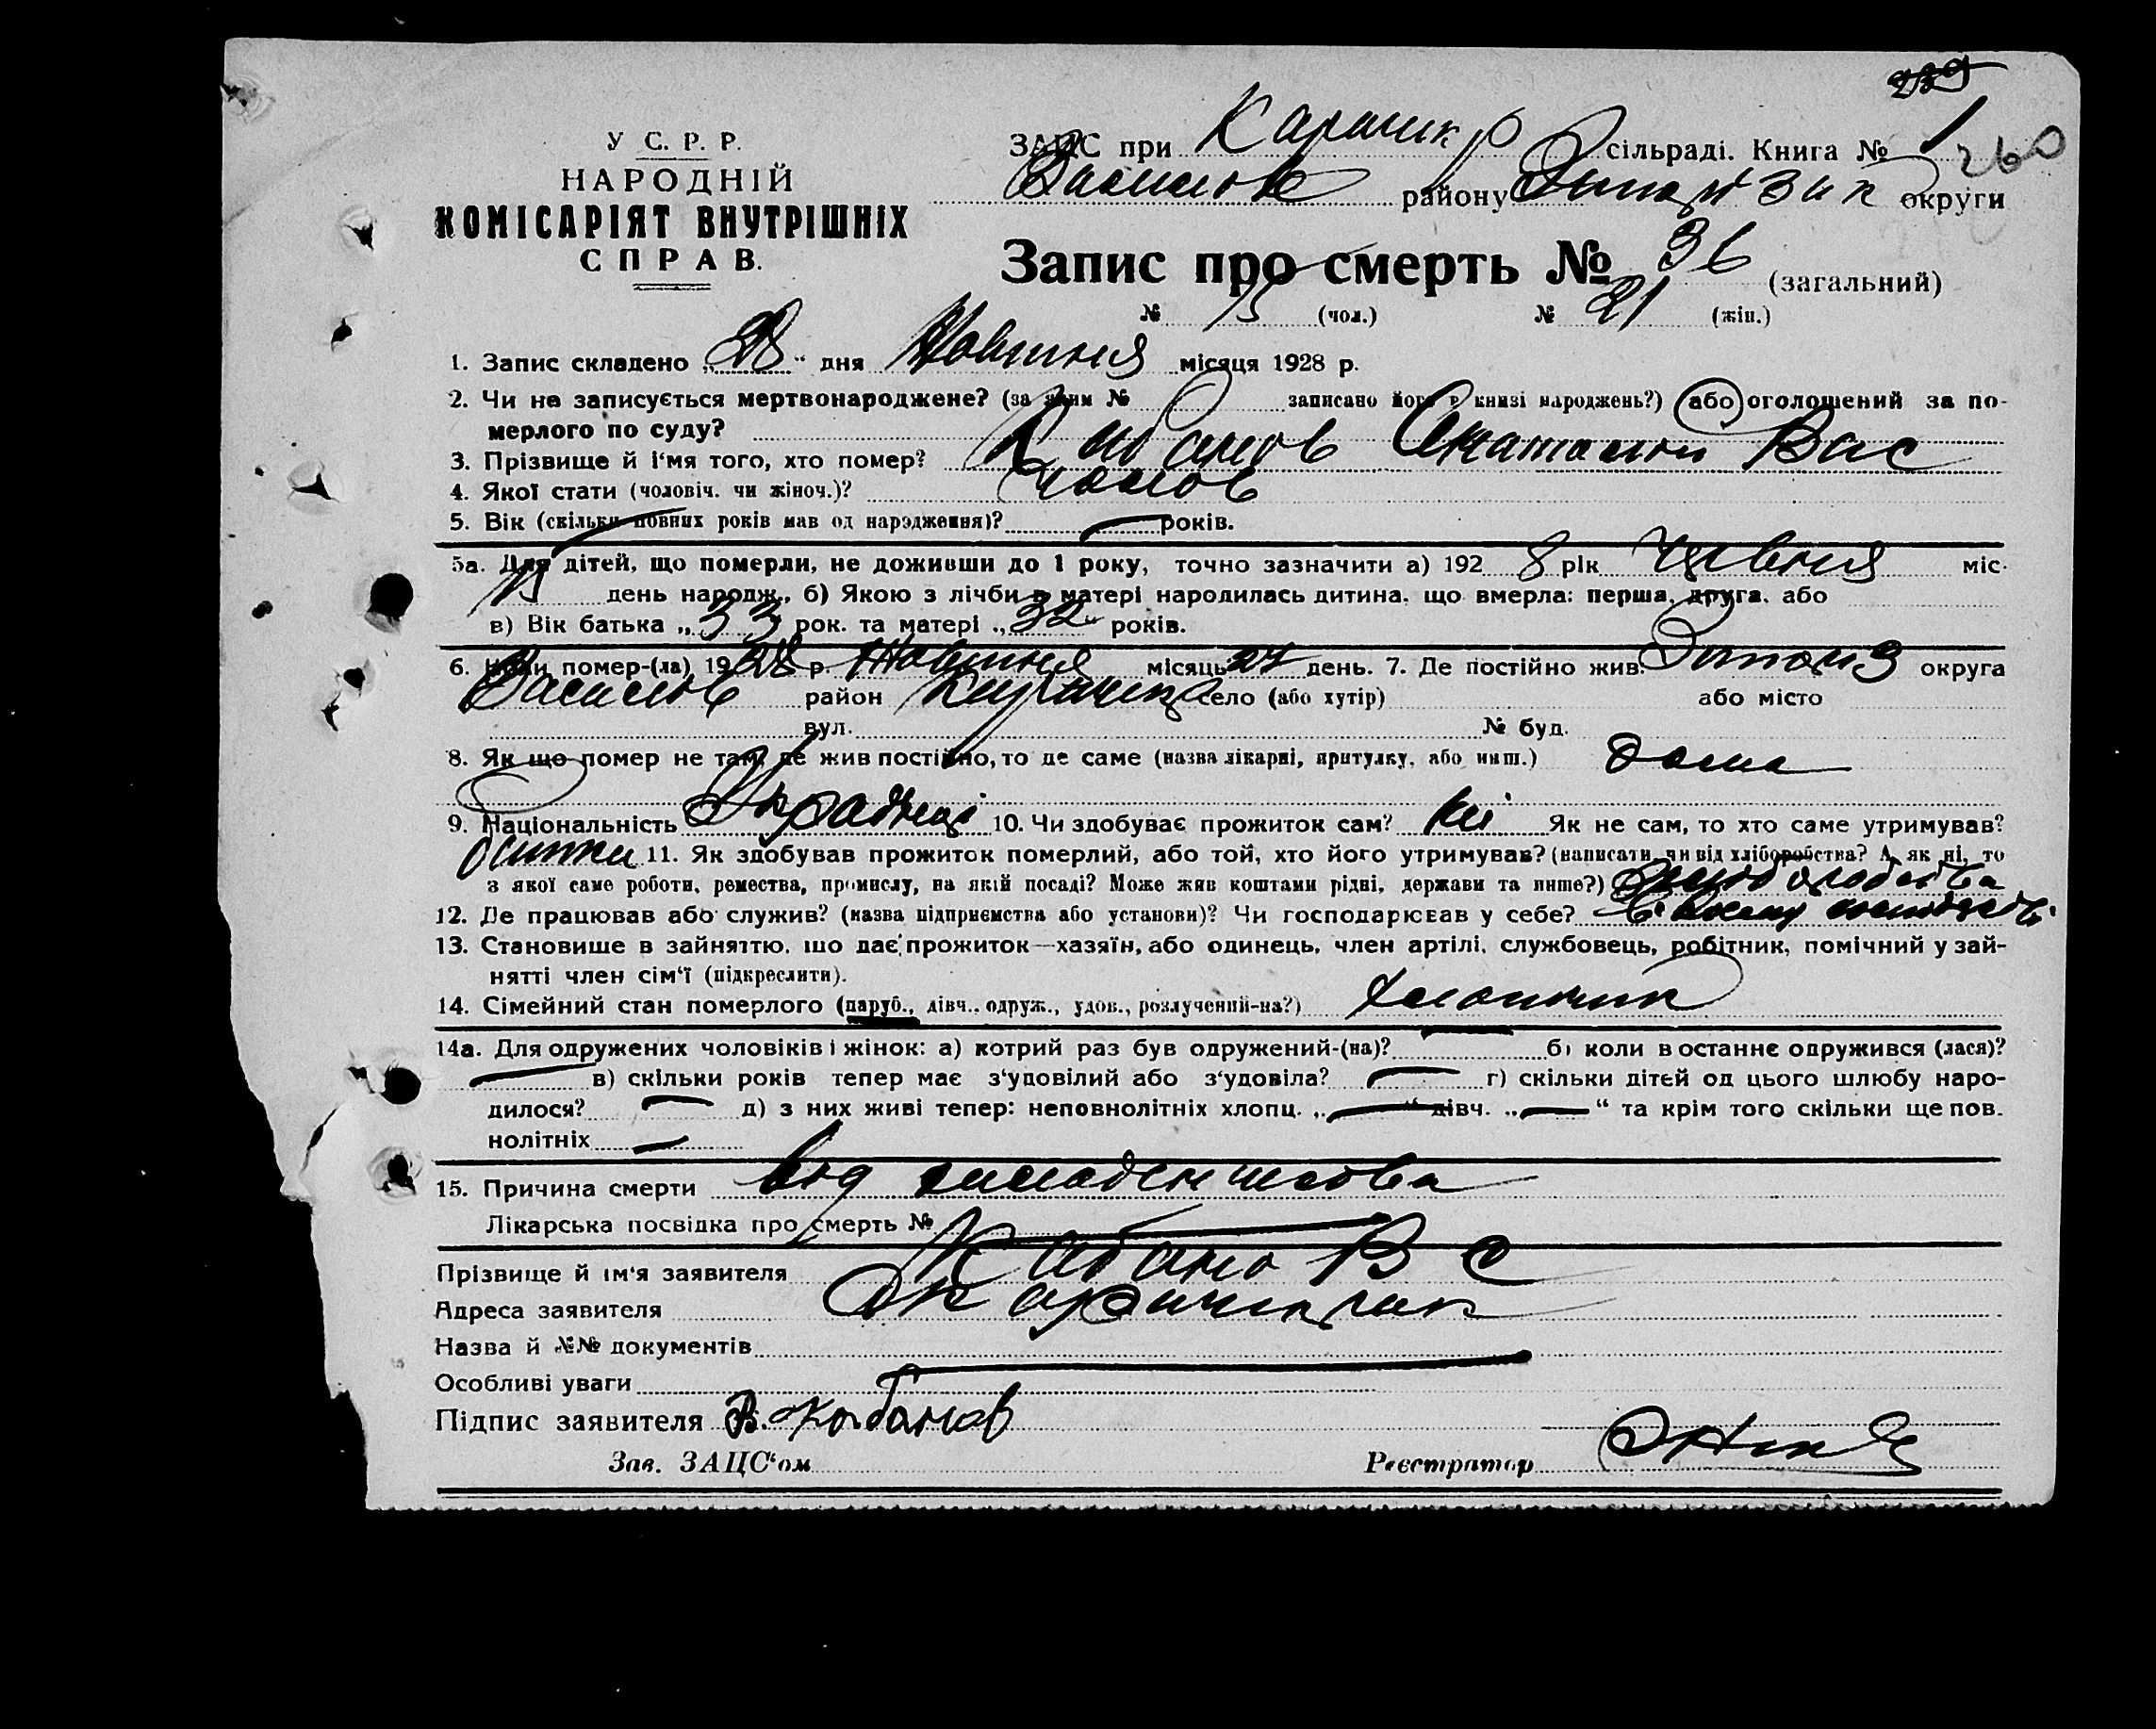 229
У С. Р. Р.
НАРОДНІЙ
КОМІСАРІЯТ ВНУТРІШНІХ
СПРАВ.
ЗАПС при Карачик сільраді. Книга № 1 260
Василів району округи
Запис про смерть № 36 (загальний)
№ 15 (чол.) № 21 (жін.)
1. Запис складено „28“ дня Жовтня місяця 1928 р.
2. Чи не записується мертвонароджене? (за яким № записано його в книзі народжень?) або оголошений за по-
мерлого по суду?
3. Прізвище й і'мя того, хто помер? Кабанов Анатолий Вас
4. Якої стати (чоловіч. чи жіноч.)? чолов
5. Вік (скільки повних років мав од народження)? — років.
5а. Для дітей, що померли, не доживши до 1 року, точно зазначити а) 1928 рік міс.
15 день народж., б) Якою з лічби в матері народилась дитина, що вмерла: перша, друга, або
в) Вік батька „33 рок. та матері „32“ років.
6. Коли помер-(ла) 1928 р. Жовтня місяць 27 день. 7. Де постійно жив. Запоріз округа
Василів район село (або хутір) або місто
вул. № буд.
8. Як що помер не там, де жив постійно, то де саме (назва лікарні, притулку, або инш.) дома
9. Національність 10. Чи здобуває прожиток сам? Ні Як не сам, то хто саме утримував?
11. Як здобував прожиток померлий, або той, хто його утримував? (написати, чи від хліборобства? А, як ні, то
з якої саме роботи, ремества, промислу, на якій посаді? Може жив коштами рідні, держави та инше?)
12. Де працював або служив? (назва підприємства або установи)? Чи господарював у себе?
13. Становище в зайняттю, що дає прожиток—хазяїн, або одинець, член артілі, службовець, робітник, помічний у зай-
нятті член сім'ї (підкреслити).
14. Сімейний стан померлого (паруб., дівч., одруж., удов., розлучений-на?) хлопчик
14а. Для одружених чоловіків і жінок: а) котрий раз був одружений-(на)? — б) коли в останнє одружився (лася)?
— в) скільки років тепер має з'удовілий або з'удовіла? — г) скільки дітей од цього шлюбу наро-
дилося? — д) з них живі тепер: неповнолітніх хлопц. „—“ дівч. „—“ та крім того скільки ще пов.
нолітніх —
15. Причина смерти від
Лікарська посвідка про смерть № —
Прізвище й ім'я заявителя Кабано В С
Адреса заявителя
Назва й №№ документів —
Особливі уваги
Підпис заявителя В. Кабанов
Зав. ЗАЦС'ом Реєстратор